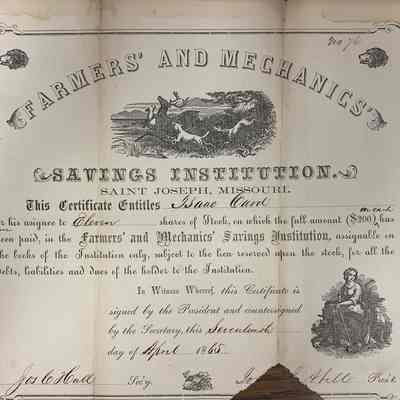 No 76
FARMERS' AND MECHANICS'
SAVINGS INSTITUTION.
SAINT JOSEPH, MISSOURI.
This Certificate Entitles Isaac Curd
or his assignee to Eleven shares of Stock, on which the full amount ($200) each has
been paid, in the Farmers' and Mechanics' Savings Institution, assignable on
the books of the Institution only, subject to the lien reserved upon the stock, for all the
debts, liabilities and dues of the holder to the Institution.
In Witness Whereof, this Certificate is
signed by the President and countersigned
by the Secretary, this Seventeenth
day of April 1865
Jos C Hull Sec'y. Pres't